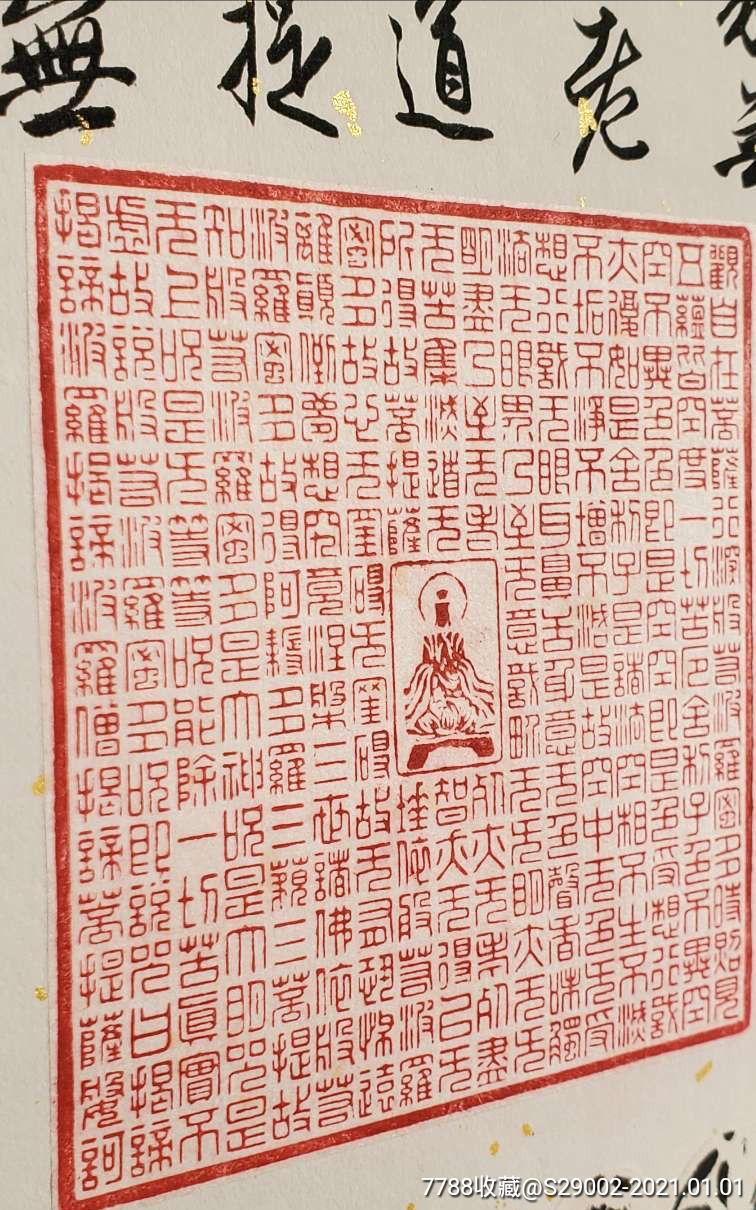 老
道
提
無
觀自在菩薩行深般若波羅蜜多時照見
五蘊皆空度一切苦厄舍利子色不異空
空不異色色即是空空即是色受想行識
亦復如是舍利子是諸法空相不生不滅
不垢不淨不增不減是故空中无色无受
想行識无眼耳鼻舌身意无色聲香味觸
法无眼界乃至无意識界无无明亦无无
明盡乃至无老死亦无老死盡
无苦集滅道无智亦无得以无
所得故菩提薩埵依般若波羅
蜜多故心无罣礙无罣礙故无有恐怖遠
離顛倒夢想究竟涅槃三世諸佛依般若
波羅蜜多故得阿耨多羅三藐三菩提故
知般若波羅蜜多是大神咒是大明咒是
无上咒是无等等咒能除一切苦真實不
虛故說般若波羅蜜多咒即說咒曰揭諦
揭諦波羅揭諦波羅僧揭諦菩提薩婆訶
7788收藏@S29002-2021.01.01